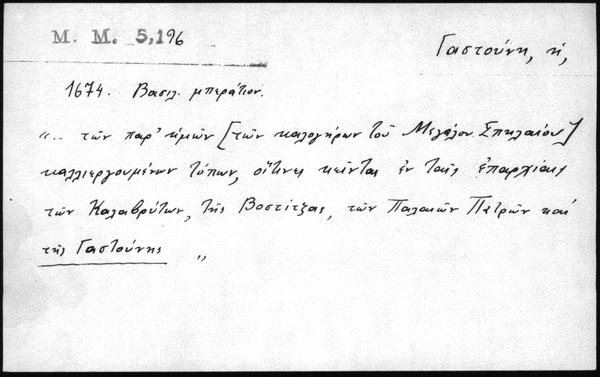 M. M. 5,196
Γαστούνη, ἡ,
1674. Βασιλ. μπεράτιον.
"... τῶν παρ' ἡμῶν [τῶν καλογήρων τοῦ Μεγάλου Σπηλαίου]
καλλιεργουμένων τόπων, οἵτινες κεῖνται ἐν ταῖς ἐπαρχίαις
τῶν Καλαβρύτων, τῆς Βοστίτζας, τῶν Παλαιῶν Πατρῶν καὶ
τῆς Γαστούνης "